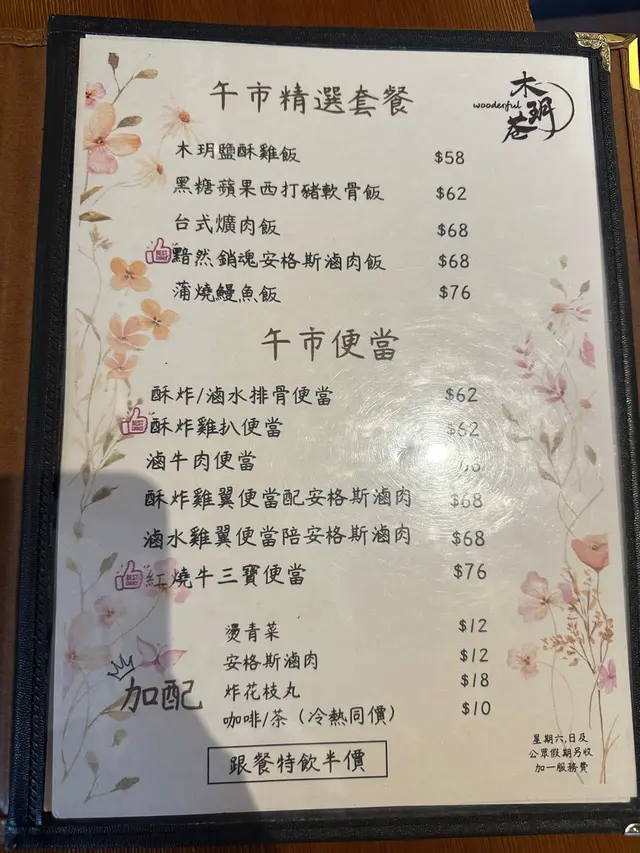 午市精選套餐
wooderful
木玥巷
木玥鹽酥雞飯 $58
黑糖蘋果西打豬軟骨飯 $62
台式爌肉飯 $68
黯然銷魂安格斯滷肉飯 $68
蒲燒鰻魚飯 $76
午市便當
酥炸/滷水排骨便當 $62
酥炸雞扒便當 $62
滷牛肉便當
酥炸雞翼便當配安格斯滷肉 $68
滷水雞翼便當陪安格斯滷肉 $68
紅燒牛三寶便當 $76
加配
燙青菜 $12
安格斯滷肉 $12
炸花枝丸 $18
咖啡/茶（冷熱同價） $10
跟餐特飲半價
星期六,日及
公眾假期另收
加一服務費